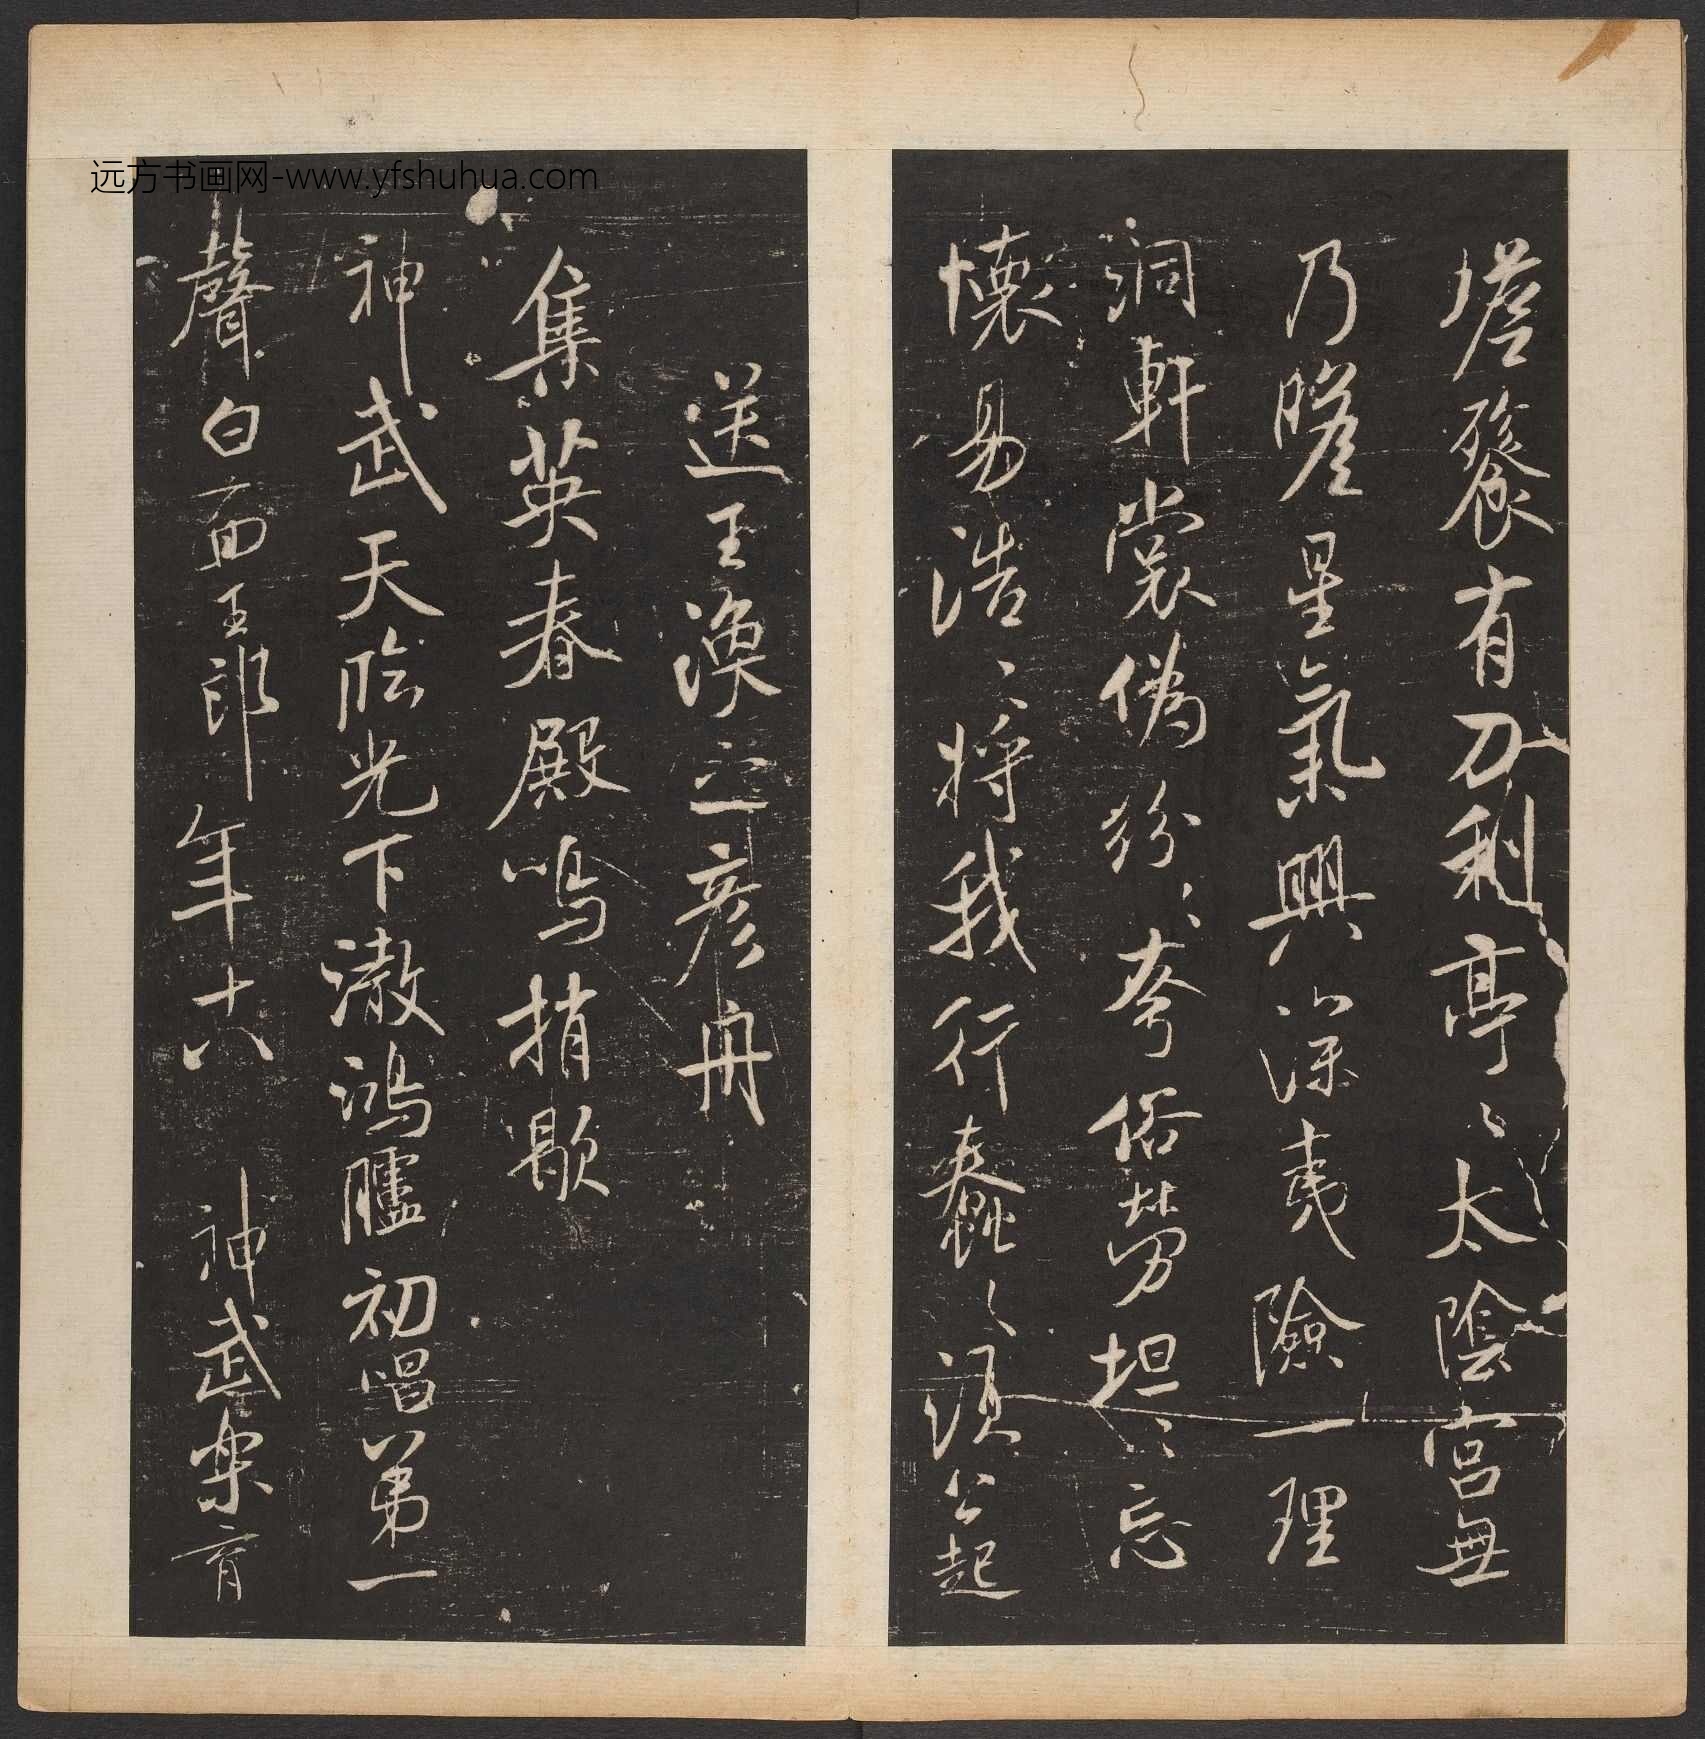 塔發有刀利亭〻太陰宮無
乃瞻星氣興深夷險一理
洞軒裳偽紛〻夸俗勞坦〻忘
懷易浩〻將我行蠢〻須公起
送王渙之彥舟
集英春殿鳴捎歇
神武天臨光下澈鴻臚初唱第一
聲白面王郎年十八神武樂育
远方书画网-www.yfshuhua.com